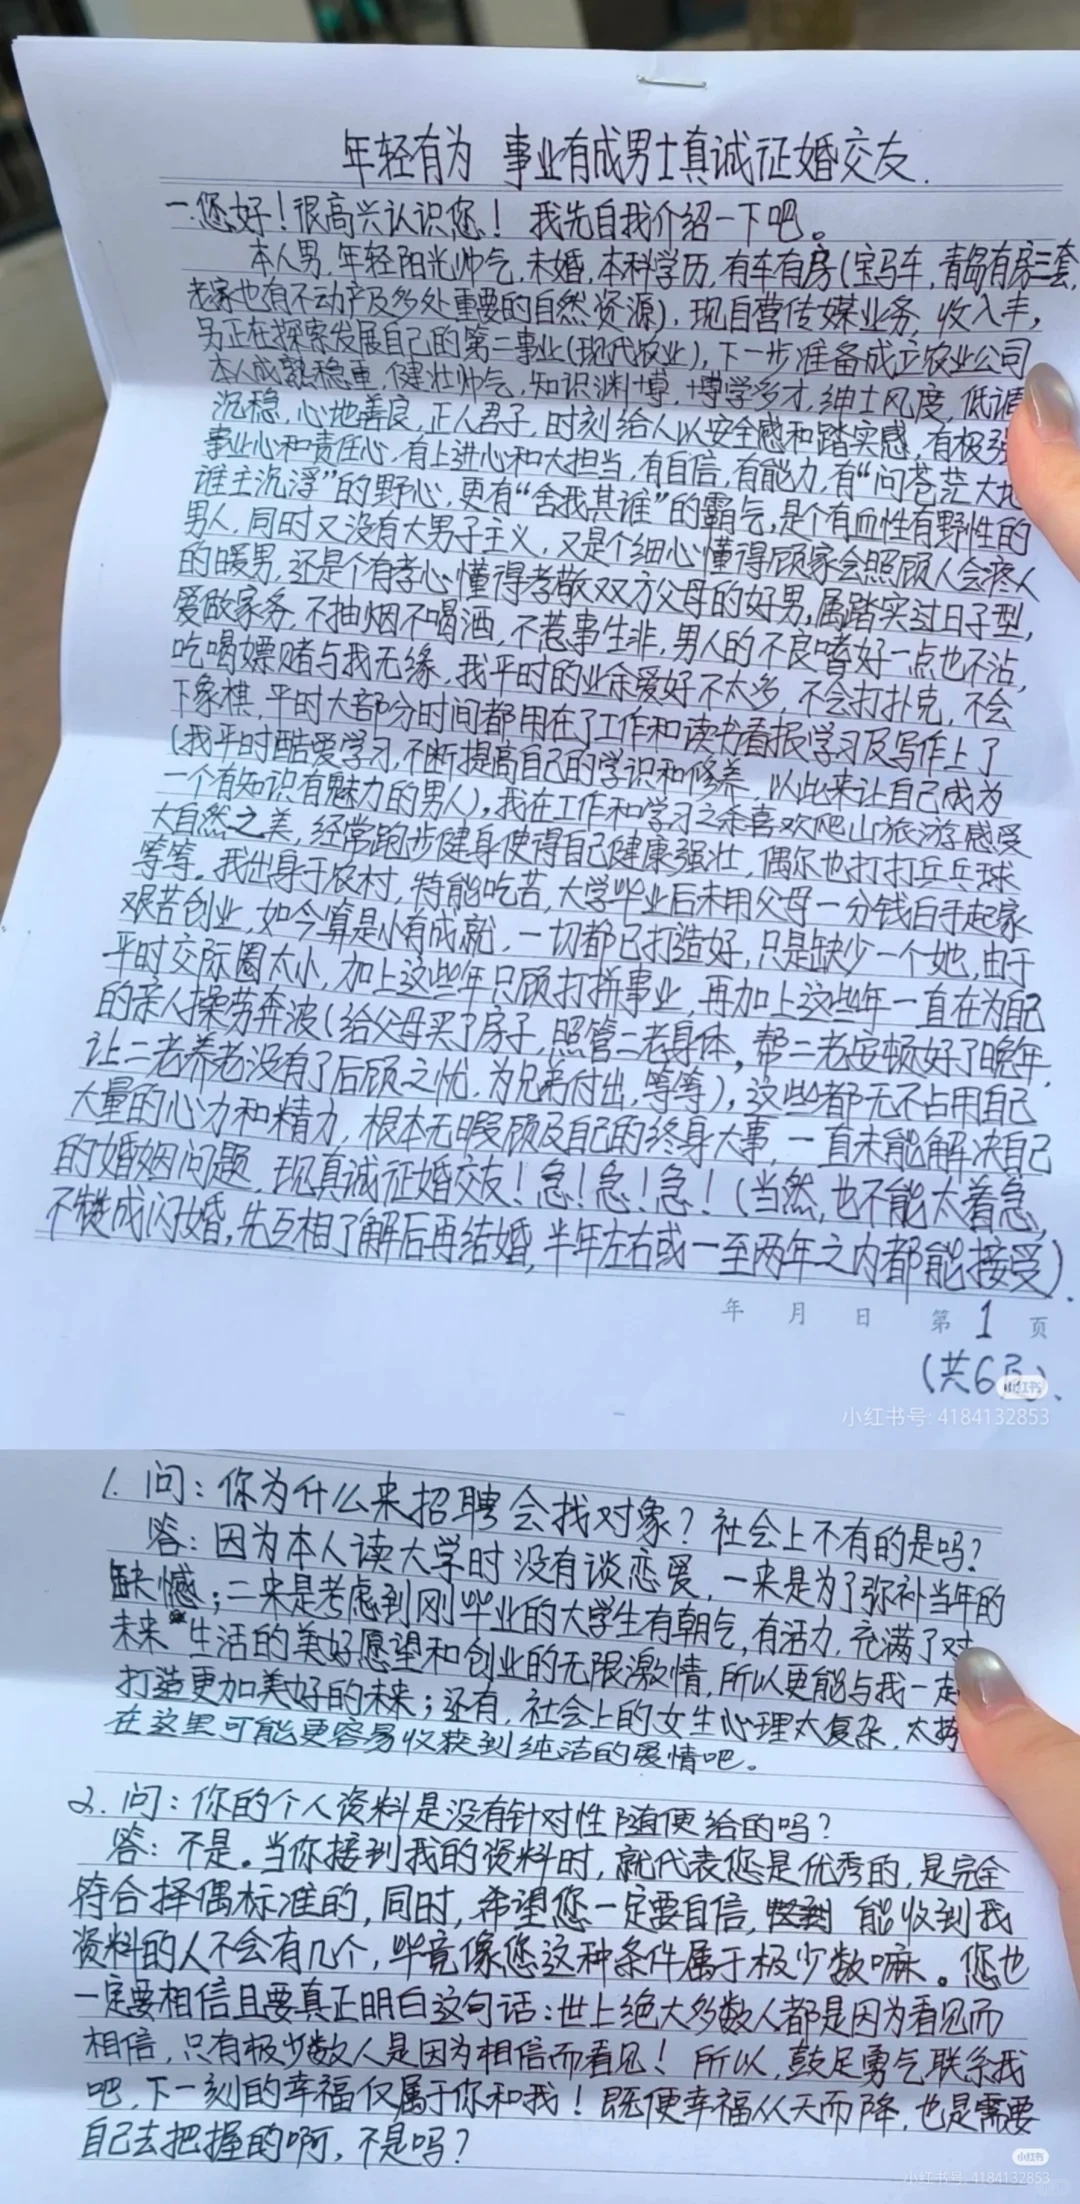 年轻有为 事业有成男士真诚征婚交友.
一.您好!很高兴认识您! 我先自我介绍一下吧。
本人男,年轻阳光帅气,未婚,本科学历,有车有房(宝马车,青岛有房三套,
老家也有不动产及多处重要的自然资源),现自营传媒业务,收入丰,
另正在探索发展自己的第二事业(现代农业),下一步准备成立农业公司
本人成熟稳重,健壮帅气,知识渊博,博学多才,绅士风度,低调
沉稳,心地善良,正人君子,时刻给人以安全感和踏实感,有极强
事业心和责任心,有上进心和大担当,有自信,有能力,有“问苍茫大地
谁主沉浮”的野心,更有“舍我其谁”的霸气,是个有血性有野性的
男人,同时又没有大男子主义,又是个细心懂得顾家会照顾人会疼人
的暖男,还是个有孝心懂得孝敬双方父母的好男,属踏实过日子型,
爱做家务,不抽烟不喝酒,不惹事生非,男人的不良嗜好一点也不沾,
吃喝嫖赌与我无缘,我平时的业余爱好不太多,不会打扑克,不会
下象棋,平时大部分时间都用在了工作和读书看报学习及写作上了
(我平时酷爱学习,不断提高自己的学识和修养 以此来让自己成为
一个有知识有魅力的男人),我在工作和学习之余喜欢爬山旅游感受
大自然之美,经常跑步健身使得自己健康强壮,偶尔也打打乒乓球
等等。我出身于农村,特能吃苦,大学毕业后未用父母一分钱白手起家
艰苦创业,如今算是小有成就,一切都已打造好,只是缺少一个她,由于
平时交际圈太小,加上这些年只顾打拼事业,再加上这些年一直在为自己
的亲人操劳奔波(给父母买了房子,照管二老身体,帮二老安顿好了晚年,
让二老养老没有了后顾之忧,为兄弟付出,等等),这些都无不占用自己
大量的心力和精力,根本无暇顾及自己的终身大事,一直未能解决自己
的婚姻问题,现真诚征婚交友!急!急!急!(当然,也不能太着急,
不赞成闪婚,先互相了解后再结婚,半年左右或一至两年之内都能接受).
年 月 日 第 1 页
(共6页).
小红书
小红书号: 4184132853
1. 问: 你为什么来招聘会找对象?社会上不有的是吗?
答: 因为本人读大学时没有谈恋爱,一来是为了弥补当年的
缺憾;二来是考虑到刚毕业的大学生有朝气,有活力,充满了对
未来 生活的美好愿望和创业的无限激情,所以更能与我一起
打造更加美好的未来;还有,社会上的女生心理太复杂,太
在这里可能更容易收获到纯洁的爱情吧。
2. 问: 你的个人资料是没有针对性随便给的吗?
答: 不是。当你接到我的资料时,就代表您是优秀的,是完全
符合择偶标准的,同时,希望您一定要自信, 能收到我
资料的人不会有几个,毕竟像您这种条件属于极少数嘛。您也
一定要相信且要真正明白这句话:世上绝大多数人都是因为看见而
相信,只有极少数人是因为相信而看见!所以,鼓足勇气联系我
吧,下一刻的幸福仅属于你和我!既便幸福从天而降,也是需要
自己去把握的啊,不是吗?
小红书
小红书号: 4184132853